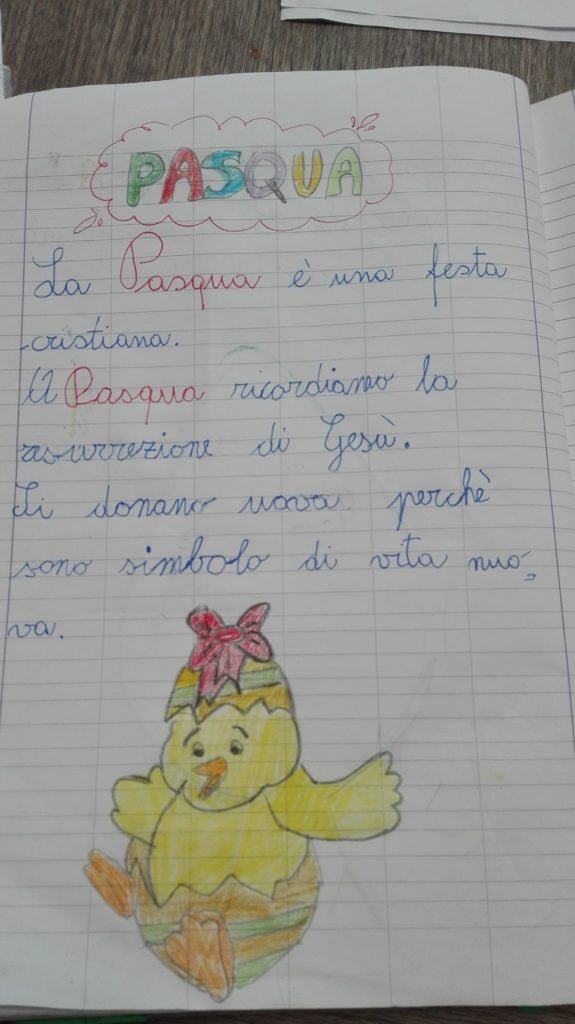 PASQUA
La Pasqua è una festa
cristiana.
A Pasqua ricordiamo la
resurrezione di Gesù.
Si donano uova perchè
sono simbolo di vita nuo=
va.